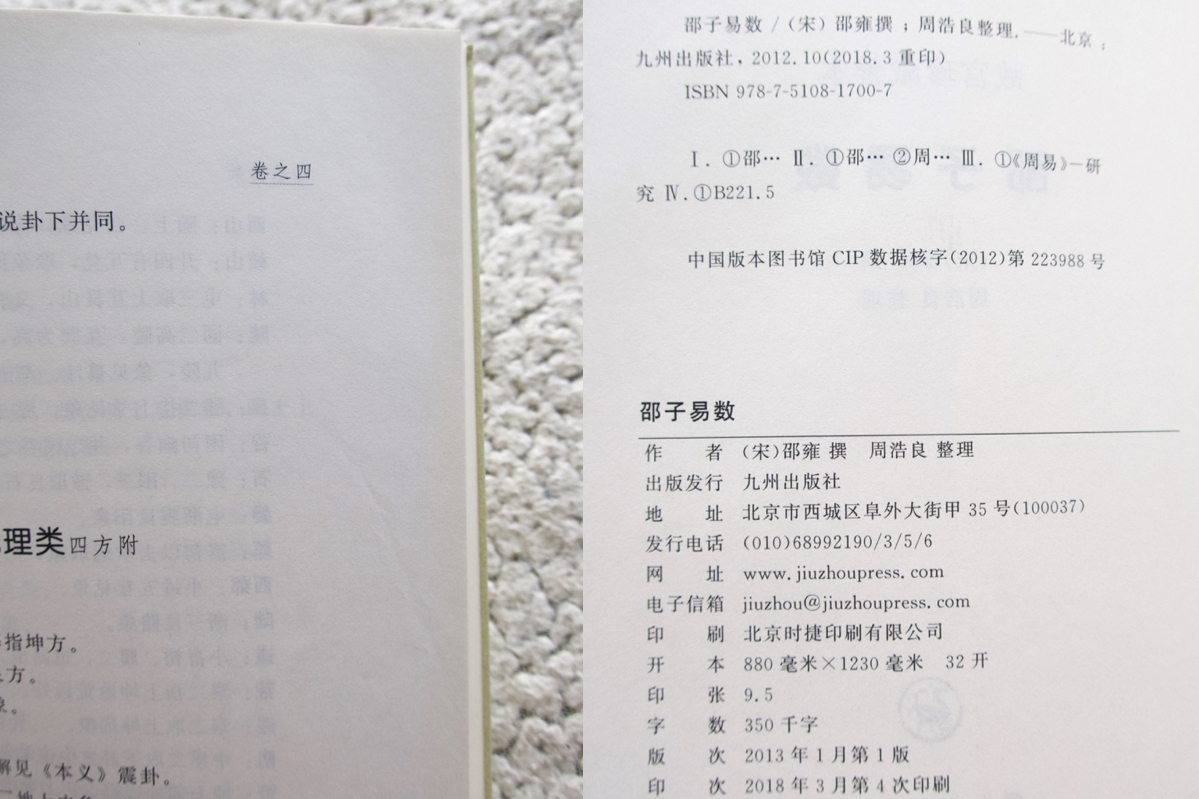 卷之四
说卦下并同。
理类四方附
指坤方。
方。
解见《本义》震卦。
邵子易数/（宋）邵雍撰；周浩良整理.——北京：
九州出版社，2012.10（2018.3重印）
ISBN 978-7-5108-1700-7
Ⅰ.①邵… Ⅱ.①邵… ②周… Ⅲ.①《周易》—研
究 Ⅳ.①B221.5
中国版本图书馆CIP数据核字（2012）第223988号
邵子易数
作 者 （宋）邵雍 撰 周浩良 整理
出版发行 九州出版社
地 址 北京市西城区阜外大街甲35号（100037）
发行电话 （010）68992190/3/5/6
网 址 www.jiuzhoupress.com
电子信箱 jiuzhou@jiuzhoupress.com
印 刷 北京时捷印刷有限公司
开 本 880毫米×1230毫米 32开
印 张 9.5
字 数 350千字
版 次 2013年1月第1版
印 次 2018年3月第4次印刷